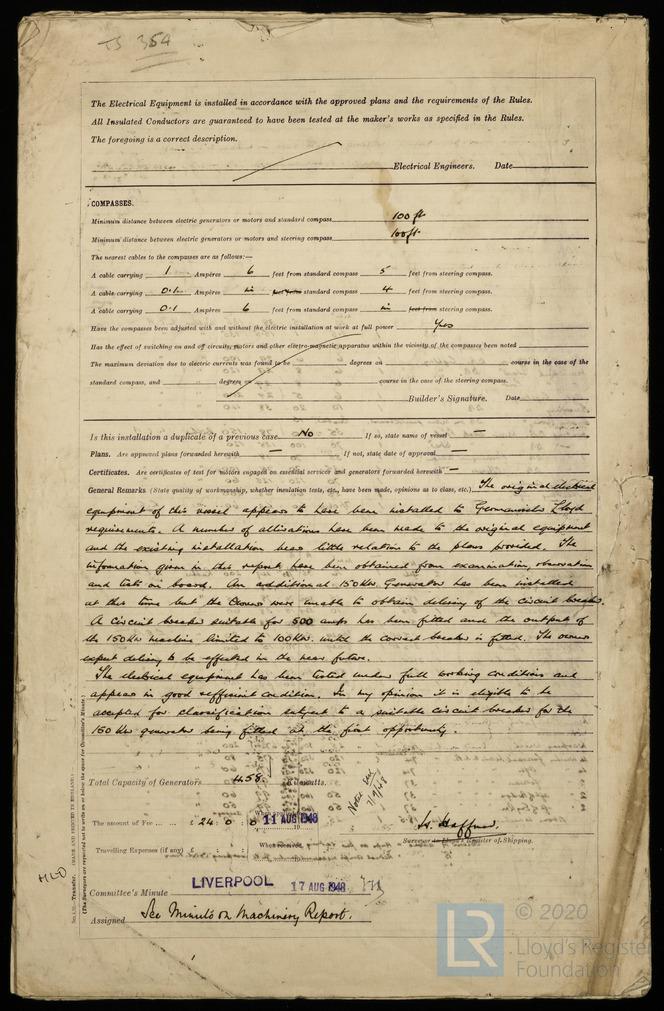 TS 354
The Electrical Equipment is installed in accordance with the approved plans and the requirements of the Rules.
All Insulated Conductors are guaranteed to have been tested at the maker's works as specified in the Rules.
The foregoing is a correct description.
Electrical Engineers. Date
COMPASSES.
Minimum distance between electric generators or motors and standard compass 100 ft
Minimum distance between electric generators or motors and steering compass 100 ft.
The nearest cables to the compasses are as follows:—
A cable carrying 1 Ampères 6 feet from standard compass 5 feet from steering compass.
A cable carrying 0.1 Ampères in feet from standard compass 4 feet from steering compass.
A cable carrying 0.1 Ampères 6 feet from standard compass in feet from steering compass.
Have the compasses been adjusted with and without the electric installation at work at full power Yes
Has the effect of switching on and off circuits, motors and other electro-magnetic apparatus within the vicinity of the compasses been noted
The maximum deviation due to electric currents was found to be degrees on course in the case of the
standard compass, and degrees on course in the case of the steering compass.
Builder's Signature. Date
Is this installation a duplicate of a previous case No If so, state name of vessel —
Plans. Are approved plans forwarded herewith — If not, state date of approval —
Certificates. Are certificates of test for motors engaged on essential services and generators forwarded herewith —
General Remarks (State quality of workmanship, whether insulation tests, etc., have been made, opinions as to class, etc.) The original electrical
equipment of this vessel appears to have been installed to Germanischer Lloyd
requirements. A number of alterations have been made to the original equipment
and the existing installation bears little relation to the plans provided. The
information given in this report have been obtained from examination, observation
and tests on board. An additional 150 KW. Generator has been installed
at this time but the Owners were unable to obtain delivery of the circuit breaker.
A circuit breaker suitable for 500 amps has been fitted and the output of
the 150 KW machine limited to 100 KW. until the correct breaker is fitted. The owners
expect delivery to be effected in the near future.
The electrical equipment has been tested under full working conditions and
appears in good & efficient condition. In my opinion it is eligible to be
accepted for classification subject to a suitable circuit breaker for the
150 KW generator being fitted at the first opportunity.
Total Capacity of Generators 458. Kilowatts.
7/9/48
The amount of Fee ... ... £ 24 : 0 : 0 11 AUG 1948
Surveyor to Lloyd's Register of Shipping.
Travelling Expenses (if any) £ : : When
MLD
Committee's Minute LIVERPOOL 17 AUG 1948
Assigned See Minute on Machinery Report.
(The Surveyors are requested not to write on or below the space for Committee's Minute.)
© 2020
LR
Lloyd's Register
Foundation